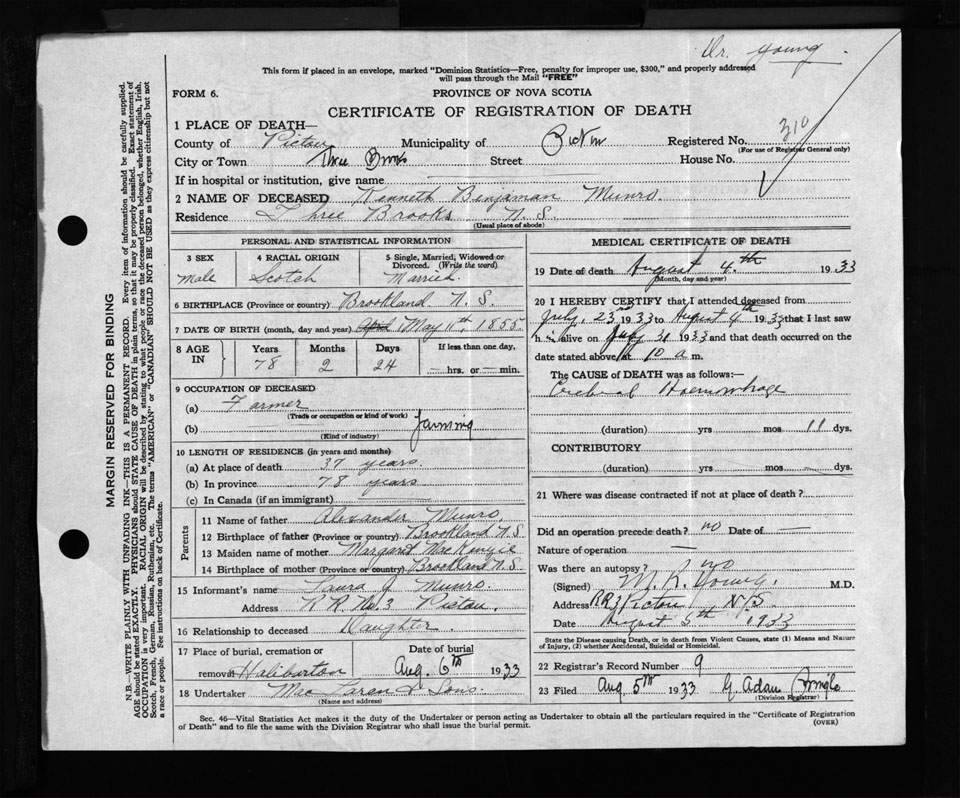 Dr. Young
This form if placed in an envelope, marked "Dominion Statistics—Free, penalty for improper use, $300," and properly addressed
will pass through the Mail "FREE"
FORM 6. PROVINCE OF NOVA SCOTIA
CERTIFICATE OF REGISTRATION OF DEATH
310
1 PLACE OF DEATH—
County of Pictou Municipality of Pictou Registered No.
(For use of Registrar General only)
City or Town Three Brooks Street House No.
If in hospital or institution, give name
2 NAME OF DECEASED Kenneth Benjaman Munro.
Residence Three Brooks N.S.
(Usual place of abode)
PERSONAL AND STATISTICAL INFORMATION
3 SEX 4 RACIAL ORIGIN 5 Single, Married, Widowed or
Divorced. (Write the word)
Male Scotch Married.
6 BIRTHPLACE (Province or country) Brookland N.S.
7 DATE OF BIRTH (month, day and year) April May 11th, 1855
8 AGE IN Years Months Days If less than one day.
78 2 24 — hrs. or — min.
9 OCCUPATION OF DECEASED
(a) Farmer
(Trade or occupation or kind of work)
(b) farming
(Kind of industry)
10 LENGTH OF RESIDENCE (in years and months)
(a) At place of death 37 years.
(b) In province 78 years
(c) In Canada (if an immigrant)
Parents
11 Name of father Alexander Munro,
12 Birthplace of father (Province or country) Brookland N.S
13 Maiden name of mother Margaret MacKenzie
14 Birthplace of mother (Province or country) Brookland N.S.
15 Informant's name Laura J Munro.
Address R.R. No. 3 Pictou.
16 Relationship to deceased Daughter.
17 Place of burial, cremation or Date of burial
removal Haliburton Aug. 6th 1933
18 Undertaker MacLaran & Sons.
(Name and address)
MEDICAL CERTIFICATE OF DEATH
19 Date of death August 4th 1933
(Month, day and year)
20 I HEREBY CERTIFY that I attended deceased from
July, 23rd 1933 to August 4th 1933 that I last saw
him alive on July 31 1933 and that death occurred on the
date stated above at 10 a m.
The CAUSE of DEATH was as follows:—
Cerebral Haemorrhage
(duration) yrs mos 11 dys.
CONTRIBUTORY
(duration) yrs mos dys.
21 Where was disease contracted if not at place of death?
Did an operation precede death? no Date of —
Nature of operation —
Was there an autopsy? no
(Signed) M. R. Young. M.D.
Address RR3 Pictou N.S
Date August 5th 1933
State the Disease causing Death, or in death from Violent Causes, state (1) Means and Nature
of Injury, (2) whether Accidental, Suicidal or Homicidal.
22 Registrar's Record Number 9
23 Filed Aug 5th 1933 G. Adam
(Division Registrar)
Sec. 46—Vital Statistics Act makes it the duty of the Undertaker or person acting as Undertaker to obtain all the particulars required in the "Certificate of Registration
of Death" and to file the same with the Division Registrar who shall issue the burial permit.
(OVER)
MARGIN RESERVED FOR BINDING
N.B.—WRITE PLAINLY WITH UNFADING INK—THIS IS A PERMANENT RECORD. Every item of information should be carefully supplied.
AGE should be stated EXACTLY. PHYSICIANS should STATE CAUSE OF DEATH in plain terms, so that it may be properly classified. Exact statement of
OCCUPATION is very important. RACIAL ORIGIN will be described by stating to what people or race the deceased person belonged, whether English, Irish,
Scotch, French, German, Russian, Ruthenian, etc. The terms "AMERICAN" or "CANADIAN" SHOULD NOT BE USED as they express citizenship but not
a race or people. See instructions on back of Certificate.